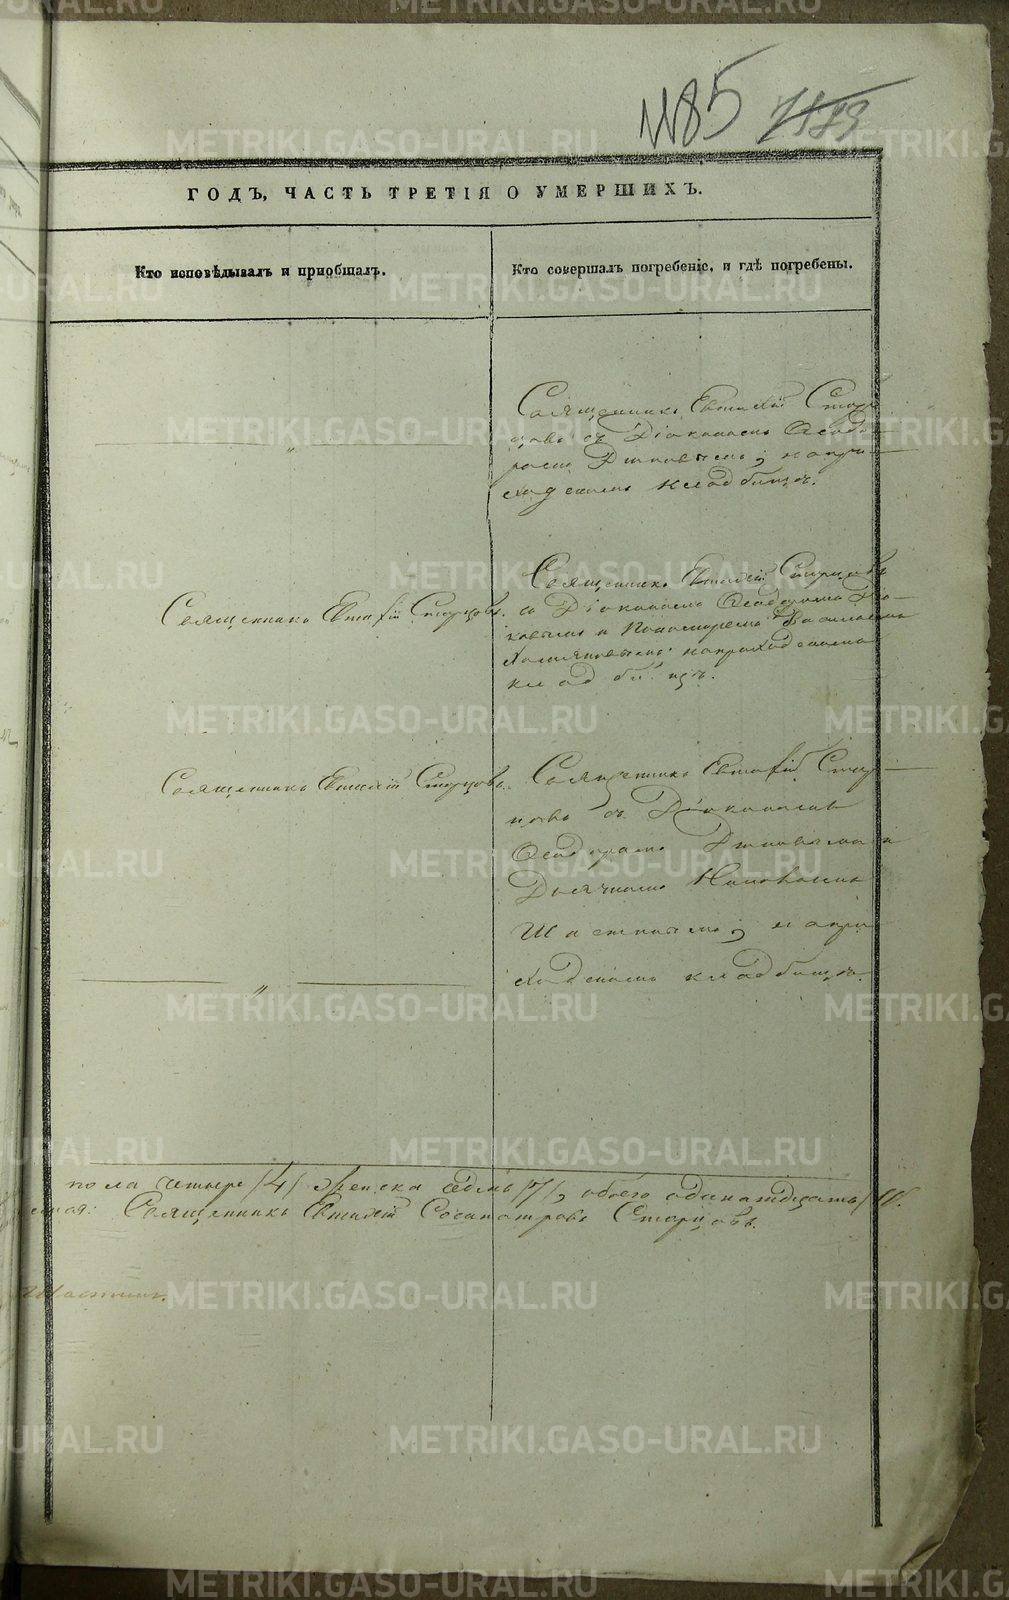 1185 7189
ГОДЪ, ЧАСТЬ ТРЕТІЯ О УМЕРШИХЪ.
Кто исповѣдывалъ и пріобщалъ.
Кто совершалъ погребеніе, и гдѣ погребены.
Священникъ Евтихій Стар-
цовъ съ Діакономъ Ѳеодо-
ромъ на при-
ходскомъ кладбищѣ.
Священникъ Евтихій Старцовъ.
Священникъ Евтихій Старцовъ
съ Діакономъ Ѳеодоромъ
и Пономаремъ Василіемъ
на приходскомъ
кладбищѣ.
Священникъ Евтихій Старцовъ.
Священникъ Евтихій Стар-
цовъ съ Діакономъ
Ѳеодоромъ и
Дьячкомъ
Шастинымъ, на при-
ходскомъ кладбищѣ.
пола четыре /4/ женска седмь /7/, обоего одинатдцать /11/.
Священникъ Евтихій Сосипатровъ Старцовъ.
Шастинъ.
METRIKI.GASO-URAL.RU